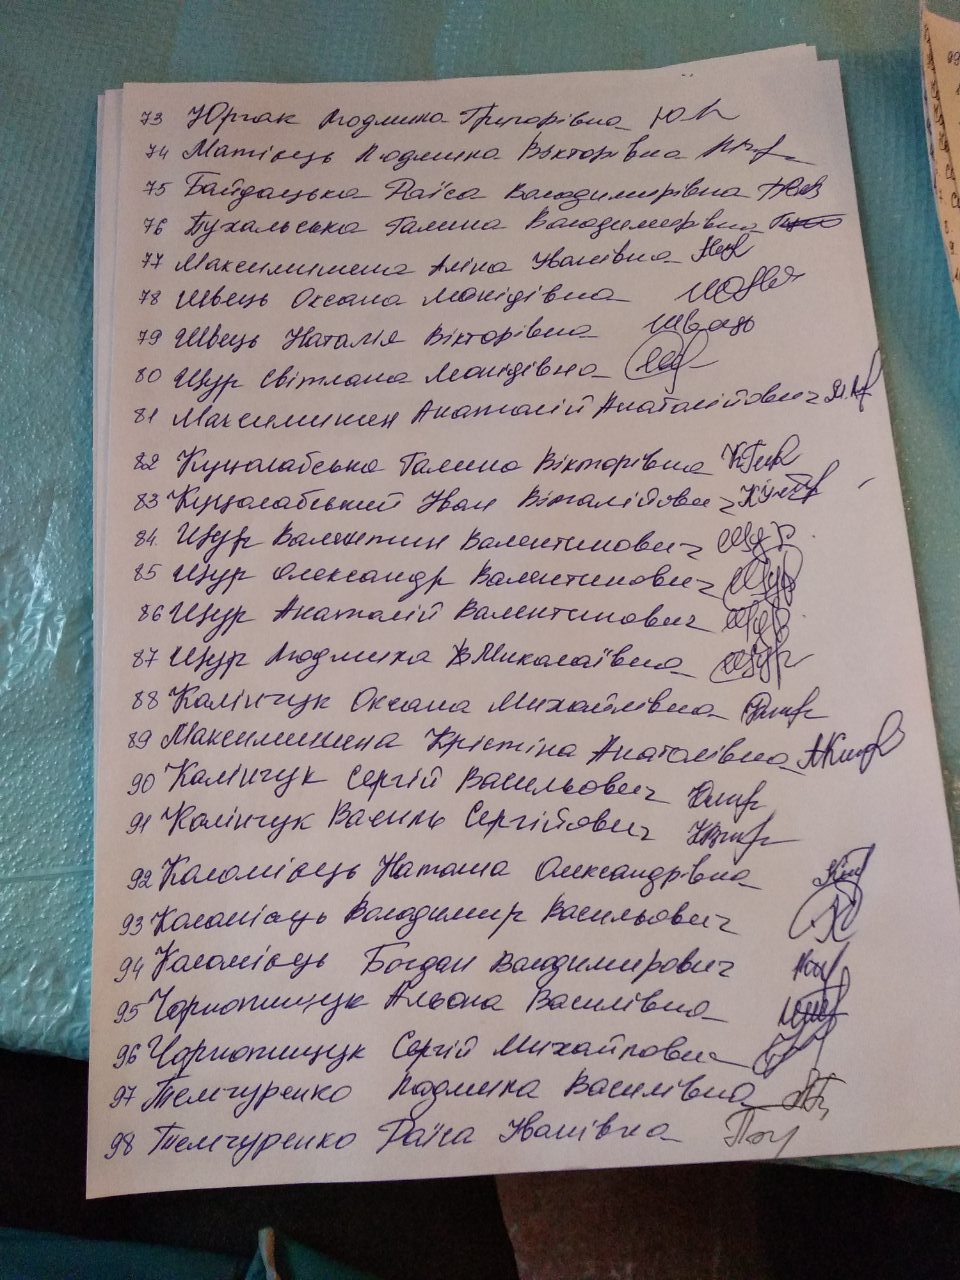 73 Юрчак Людмила Григорівна
74 Матієць Людмила Вікторівна
75 Байдацька Раїса Володимирівна
76 Пухальська Галина Володимирівна
77 Максимишена Аліна Іванівна
78 Швець Оксана Леонідівна
79 Швець Наталія Вікторівна Швець
80 Щур Світлана Леонідівна
81 Максимишен Анатолій Анатолійович
82 Куцолабська Галина Вікторівна
83 Куцолабський Іван Віталійович
84. Щур Валентин Валентинович
85 Щур Олександр Валентинович
86 Щур Анатолій Валентинович
87 Щур Людмила Миколаївна
88 Калінчук Оксана Михайлівна
89 Максимишена Крістіна Анатолівна
90 Калінчук Сергій Васильович
91 Калінчук Василь Сергійович
92 Коломієць Наталія Олександрівна
93 Коломієць Володимир Васильович
94 Коломієць Богдан Володимирович
95 Чорнопищук Альона Василівна
96 Чорнопищук Сергій Михайлович
97 Темчуренко Людмила Василівна
98 Темчуренко Раїса Іванівна